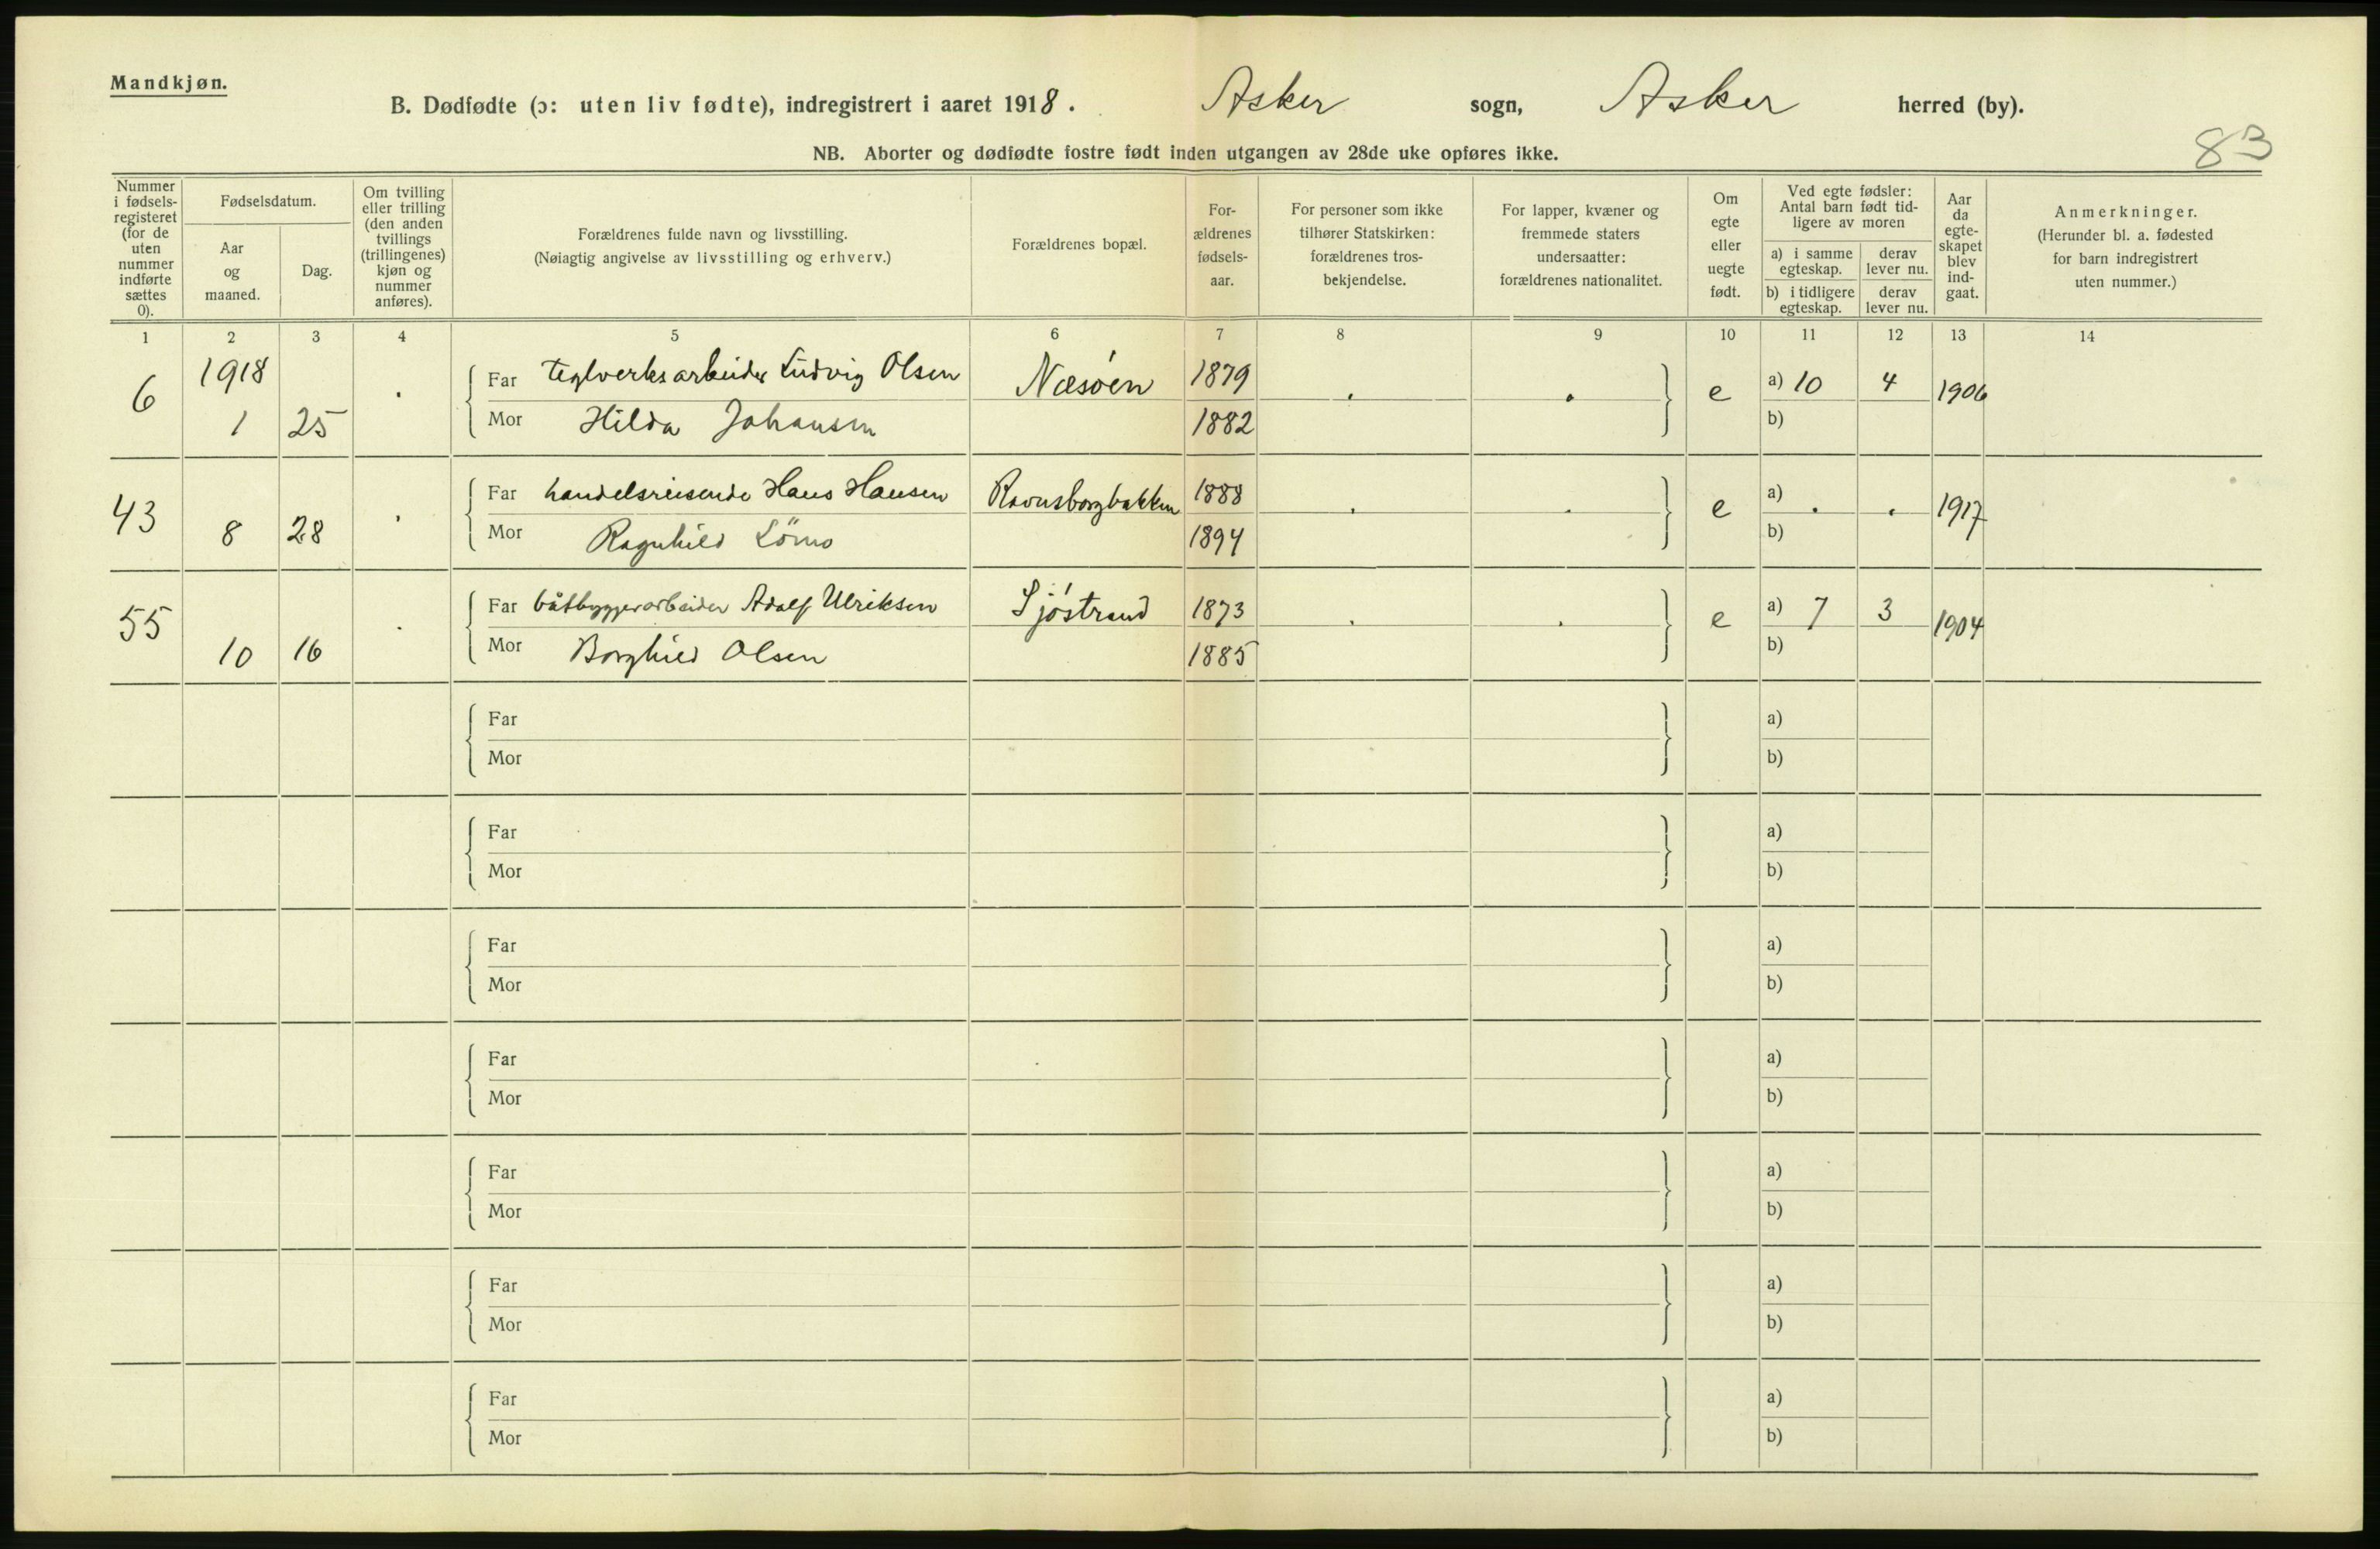 Mandkjøn.
B. Dødfødte (ɔ: uten liv fødte), indregistrert i aaret 1918. Asker sogn, Asker herred (by).
83
NB. Aborter og dødfødte fostre født inden utgangen av 28de uke opføres ikke.
Nummer i fødsels-registeret (for de uten nummer indførte sættes 0).
Fødselsdatum.
Aar og maaned.
Dag.
Om tvilling eller trilling (den anden tvillings (trillingenes) kjøn og nummer anføres).
Forældrenes fulde navn og livsstilling.
(Nøiagtig angivelse av livsstilling og erhverv.)
Forældrenes bopæl.
For-ældrenes fødsels-aar.
For personer som ikke tilhører Statskirken: forældrenes tros-bekjendelse.
For lapper, kvæner og fremmede staters undersaatter: forældrenes nationalitet.
Om egte eller uegte født.
Ved egte fødsler: Antal barn født tid-ligere av moren
a) i samme egteskap.
derav lever nu.
b) i tidligere egteskap.
derav lever nu.
Aar da egte-skapet blev ind-gaat.
Anmerkninger.
(Herunder bl. a. fødested for barn indregistrert uten nummer.)
1 2 3 4 5 6 7 8 9 10 11 12 13 14
6 1918 1 25 .
Far teglverksarbeider Ludvig Olsen Næsøen 1879 . . e a) 10 4 1906
Mor Hilda Johansen 1882 b)
43 8 28 .
Far handelsreisende Hans Hansen Ravnsborgbakken 1888 . . e a) . . 1917
Mor Ragnhild Lömo 1894 b)
55 10 16 .
Far båtbyggerarbeider Adolf Ulriksen Sjøstrand 1873 . . e a) 7 3 1904
Mor Borghild Olsen 1885 b)
Far a)
Mor b)
Far a)
Mor b)
Far a)
Mor b)
Far a)
Mor b)
Far a)
Mor b)
Far a)
Mor b)
Far a)
Mor b)